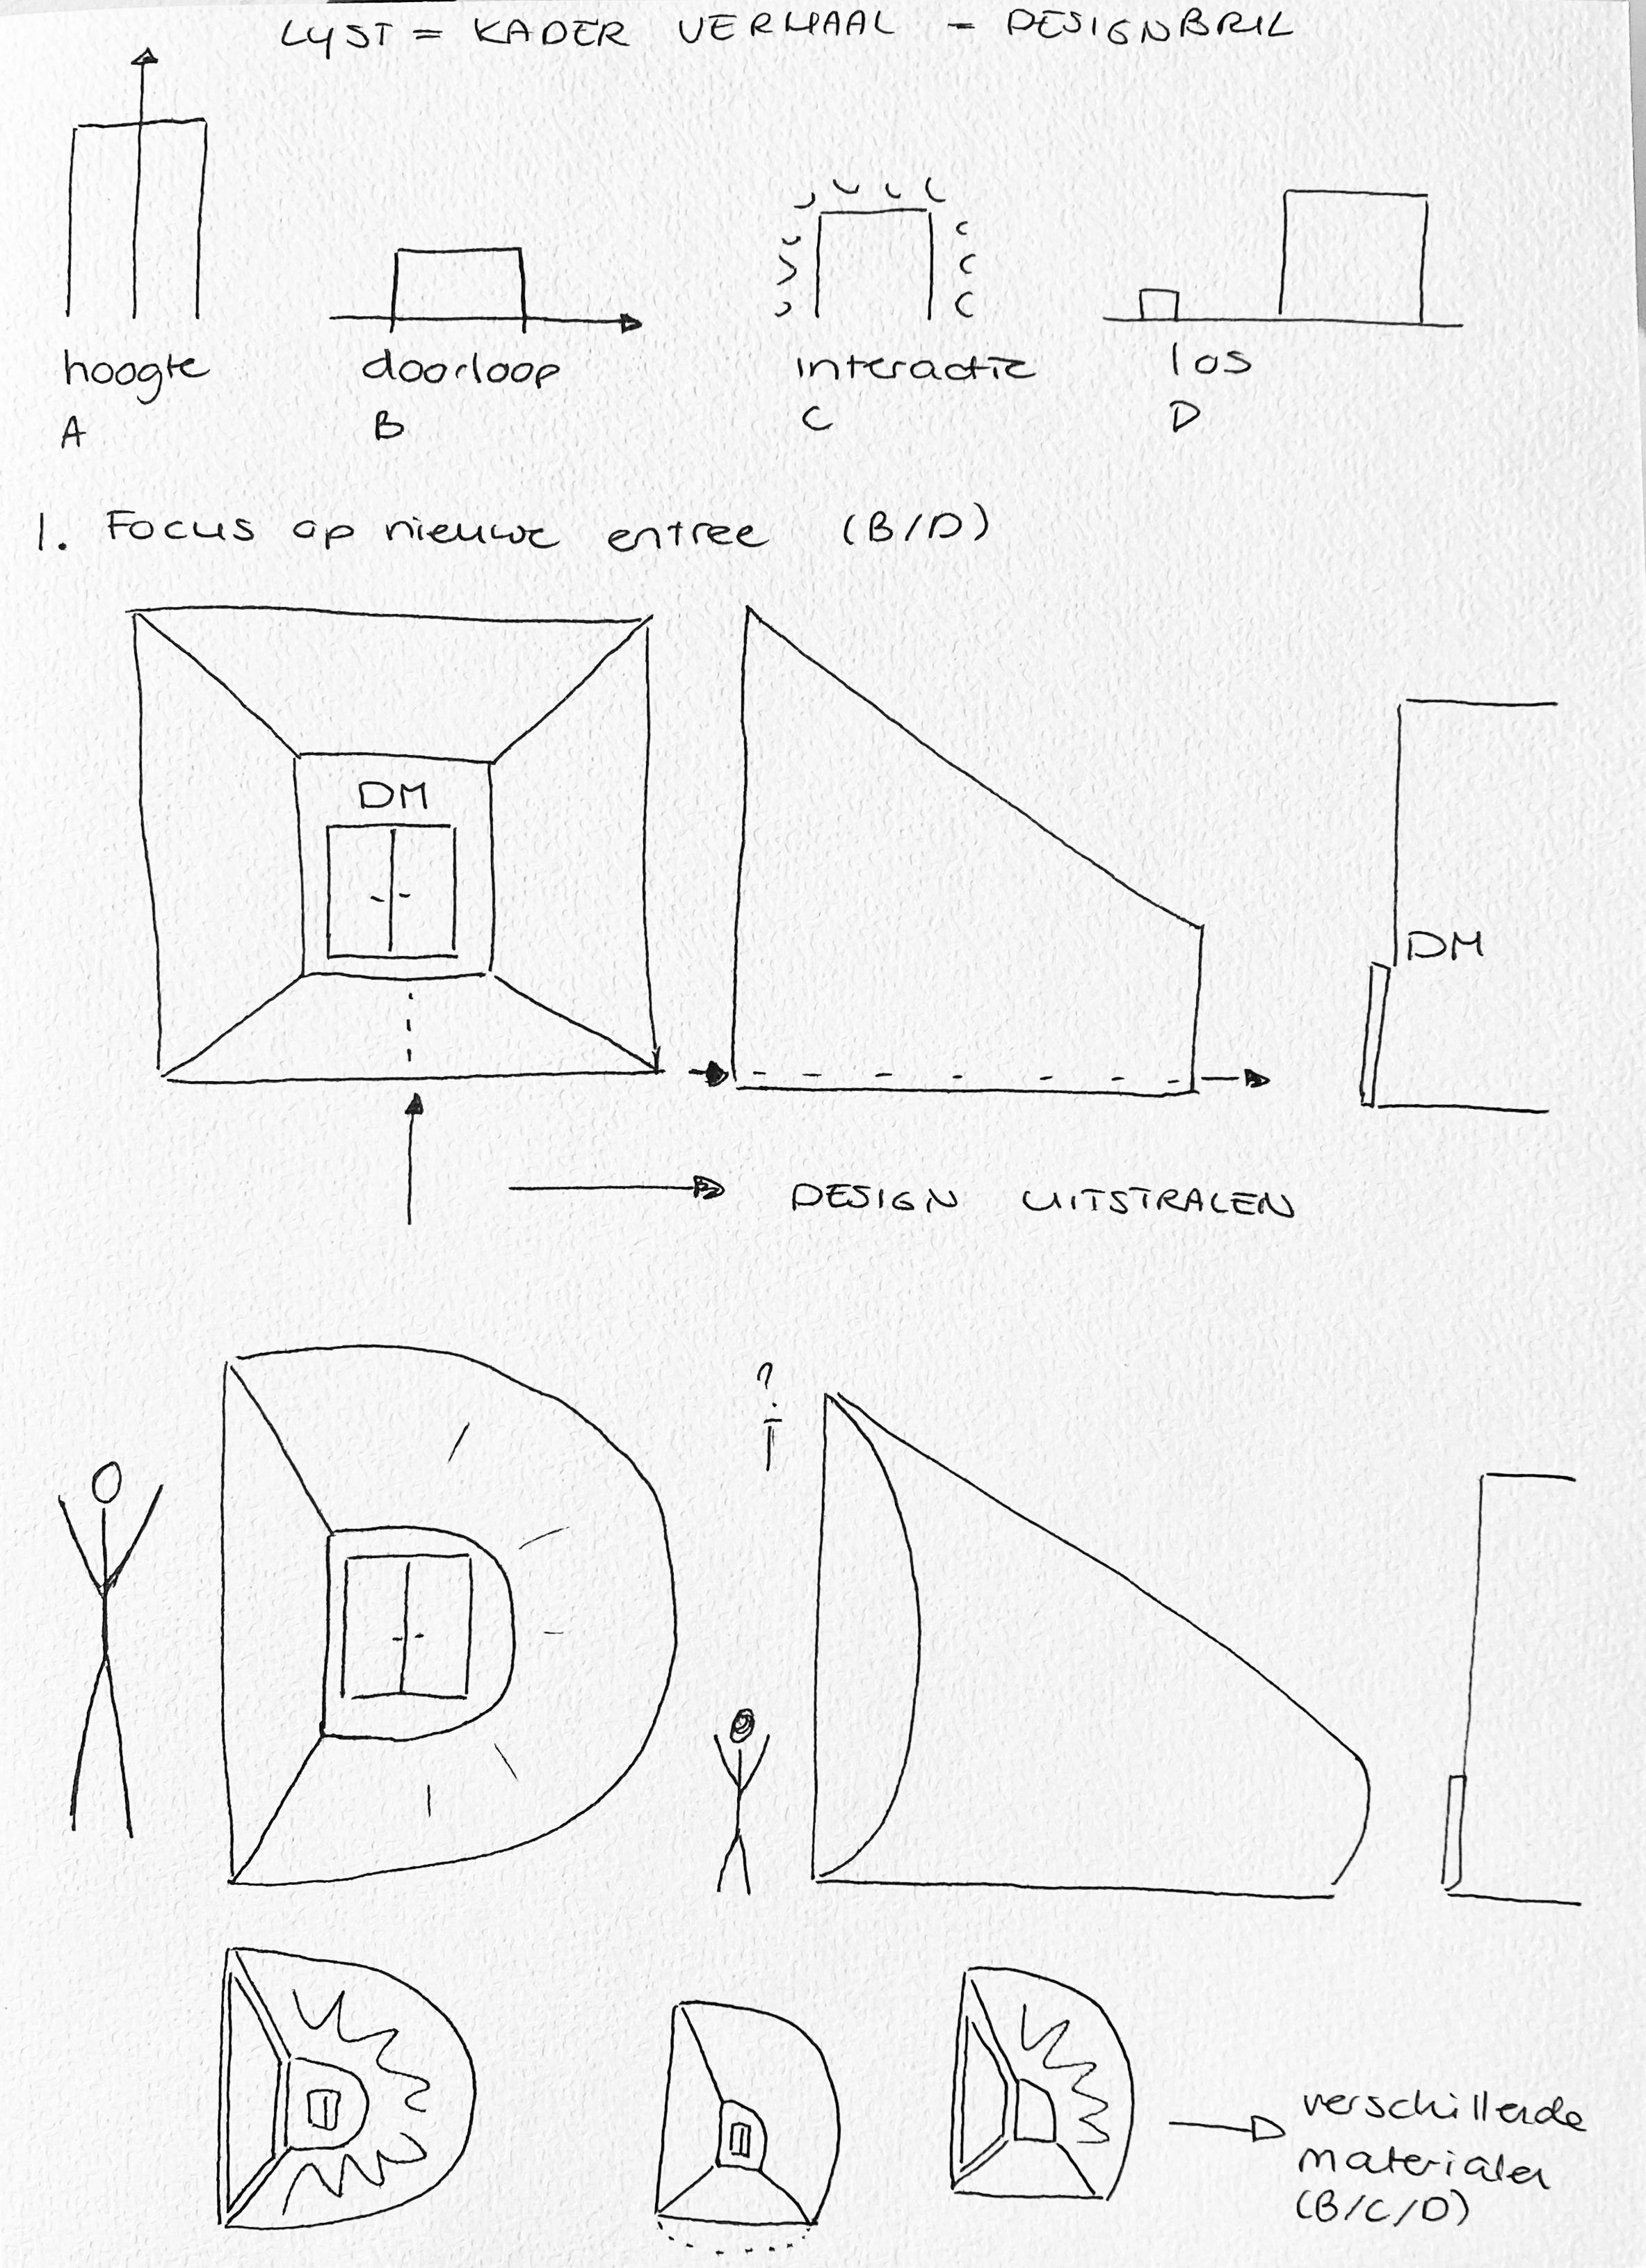 LYST = KADER VERHAAL - DESIGNBRIL
hoogte
A
doorloop
B
interactie
C
los
D
1. Focus op nieuwe entree (B/D)
DM
DM
DESIGN UITSTRALEN
?
verschillende
materialen
(B/C/D)